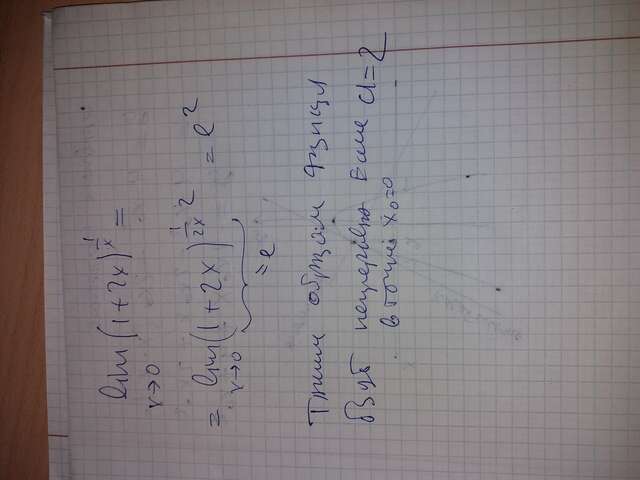 lim (1+2x)^{1/x} =
x→0
= lim (1+2x)^{1/2x · 2} = e^2
x→0
= e
Таким образом функция
будт непрерывна Если a=2
в точке x₀=0